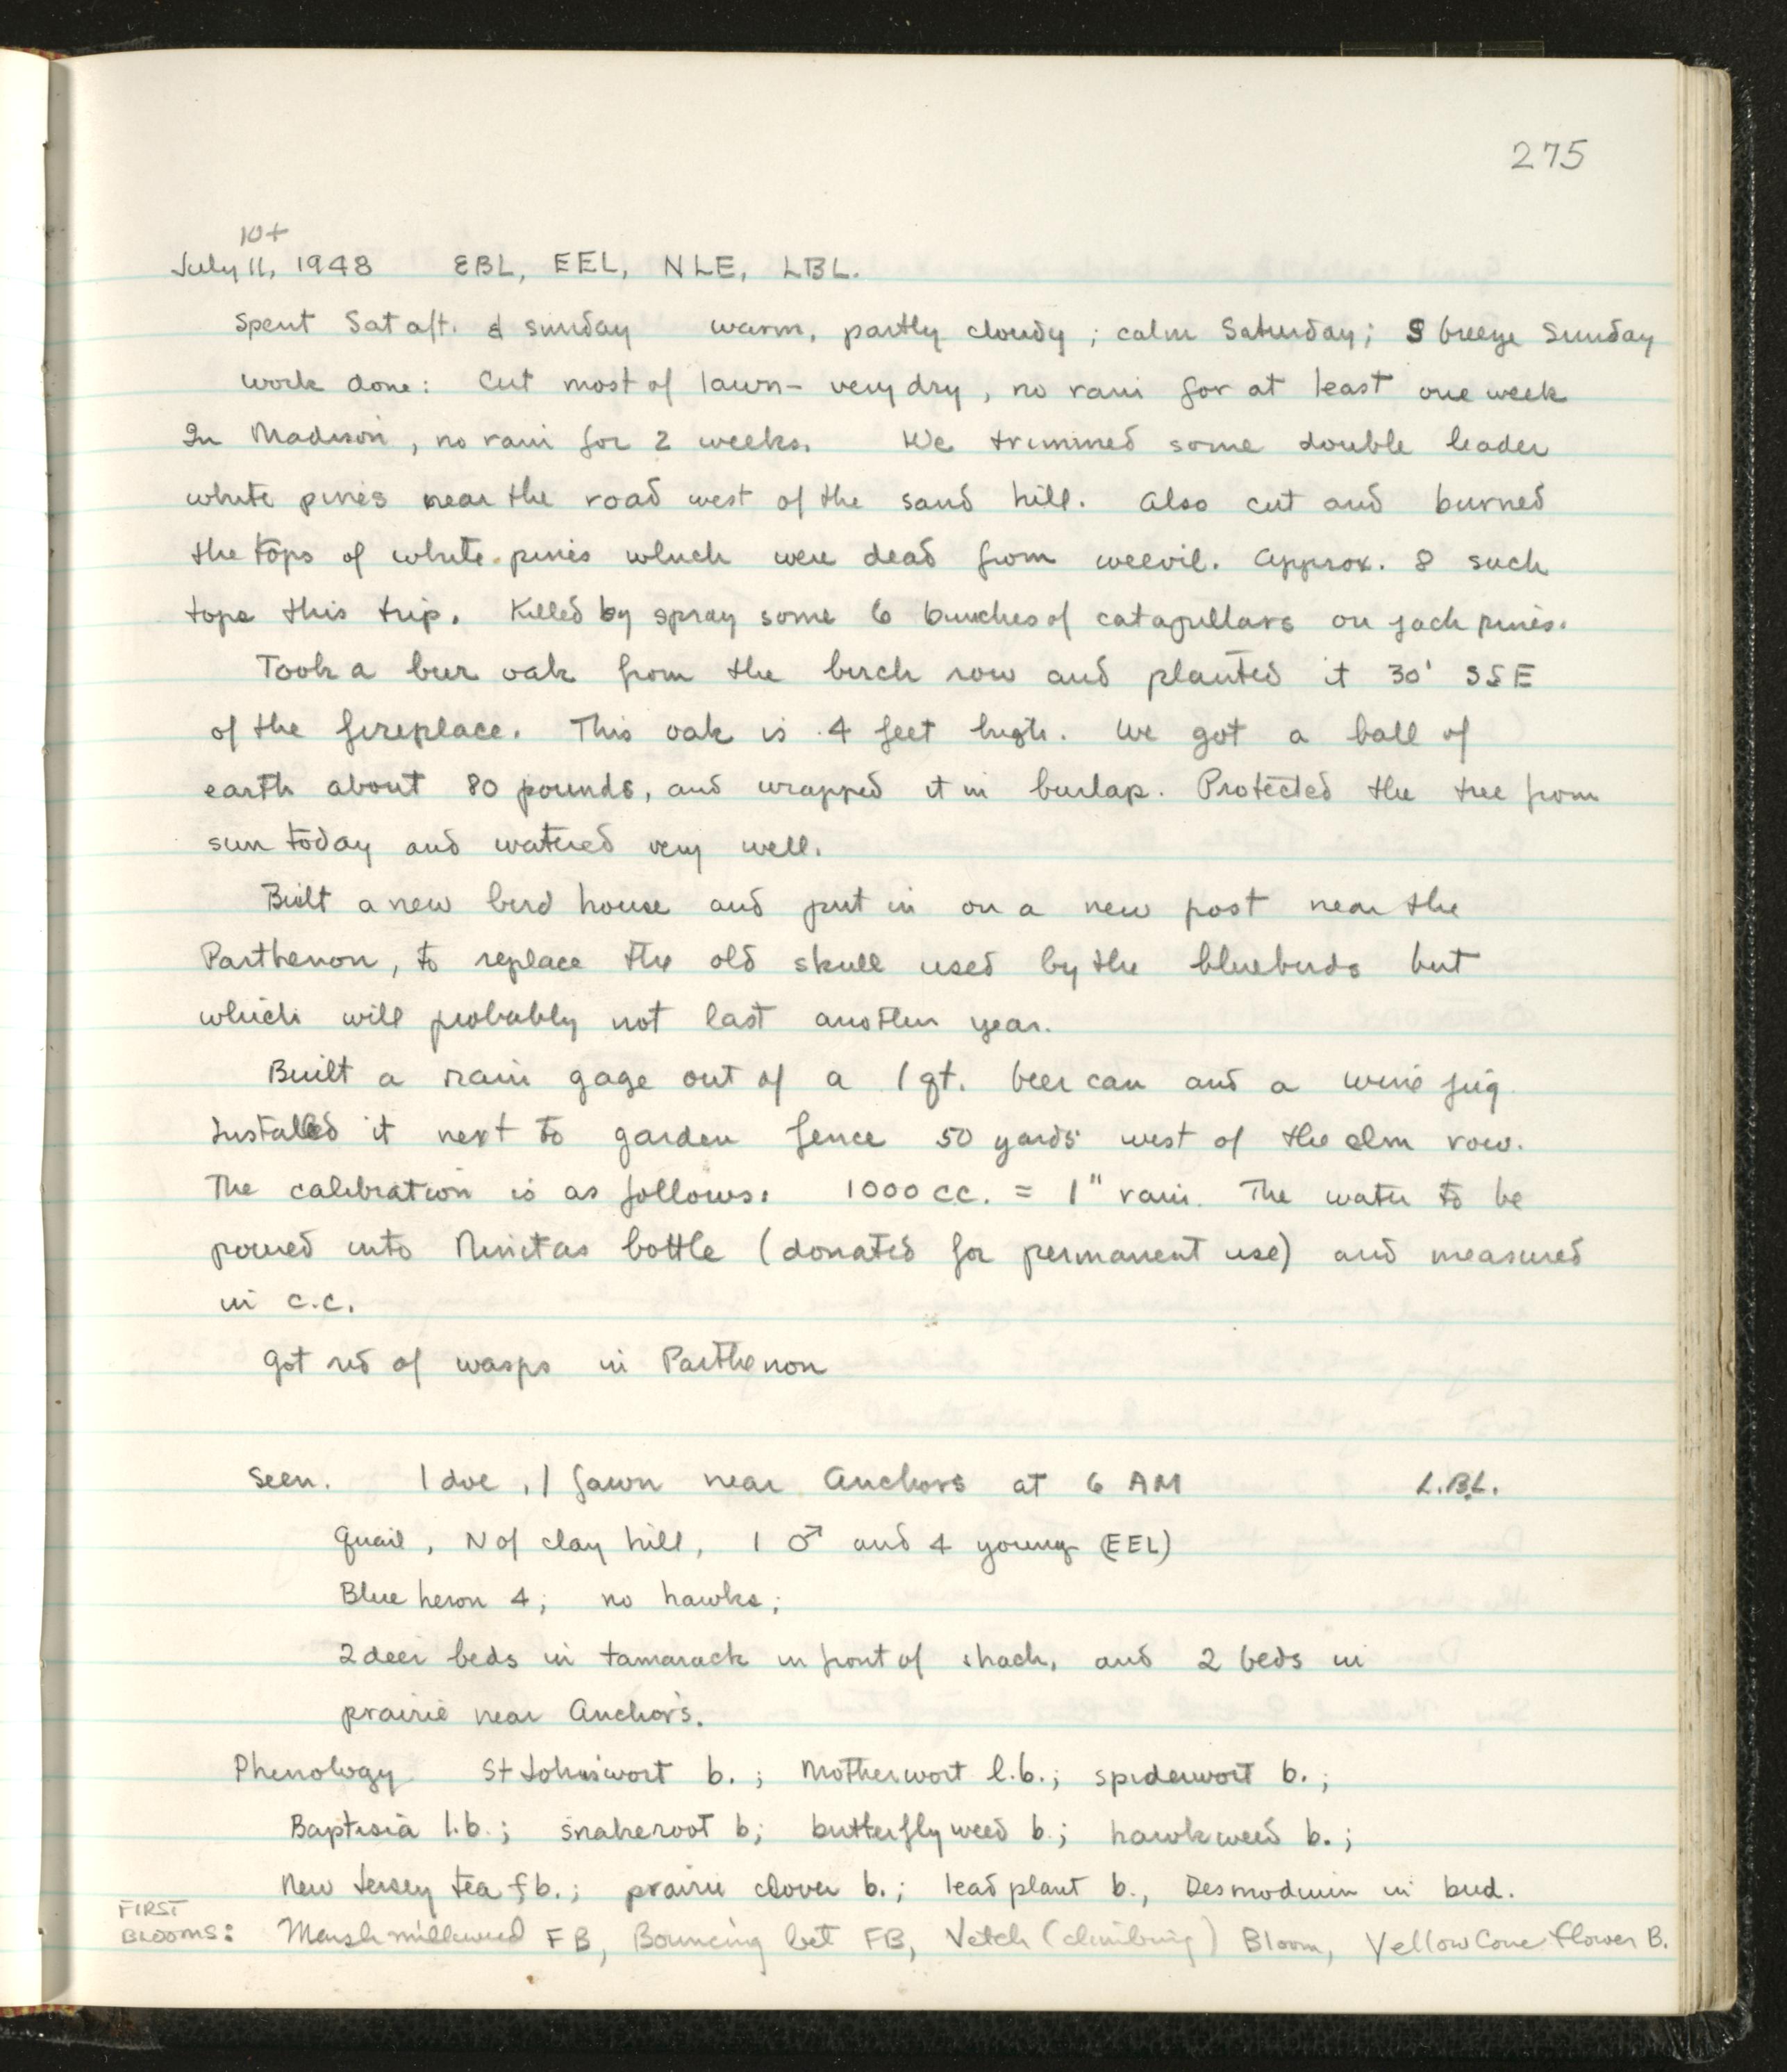 275
10+
July 11, 1948 EBL, EEL, NLE, LBL.
Spent Sat aft. & Sunday warm, partly cloudy; calm Saturday; S breeze Sunday
Work done: Cut most of lawn - very dry, no rain for at least one week
In Madison, no rain for 2 weeks. We trimmed some double leader
white pines near the road west of the sand hill. Also cut and burned
the tops of white pines which were dead from weevil. Approx. 8 such
tops this trip. Killed by spray some 6 bunches of catapillars on jack pines.
Took a bur oak from the birch row and planted it 30' SSE
of the fireplace. This oak is 4 feet high. We got a ball of
earth about 80 pounds, and wrapped it in burlap. Protected the tree from
sun today and watered very well.
Built a new bird house and put in on a new post near the
Parthenon, to replace the old skull used by the bluebirds but
which will probably not last another year.
Built a rain gage out of a 1 qt. beer can and a wine jug
Installed it next to garden fence 50 yards west of the elm row.
The calibration is as follows: 1000 cc. = 1" rain. The water to be
poured into bottle (donated for permanent use) and measured
in c.c.
Got rid of wasps in Parthenon
Seen. 1 doe, 1 fawn near Anchors at 6 AM L.B.L.
Quail, N of clay hill, 1 ♂ and 4 young (EEL)
Blue heron 4; no hawks;
2 deer beds in tamarack in front of shack, and 2 beds in
prairie near Anchor's.
Phenology St Johnswort b.; Motherwort l.b.; spiderwort b.;
Baptisia l.b.; snakeroot b; butterfly weed b.; hawkweed b.;
New Jersey tea f b.; prairie clover b.; lead plant b., Desmodium in bud.
FIRST
BLOOMS: Marsh milkweed FB, Bouncing bet FB, Vetch (climbing) Bloom, Yellow Cone flower B.